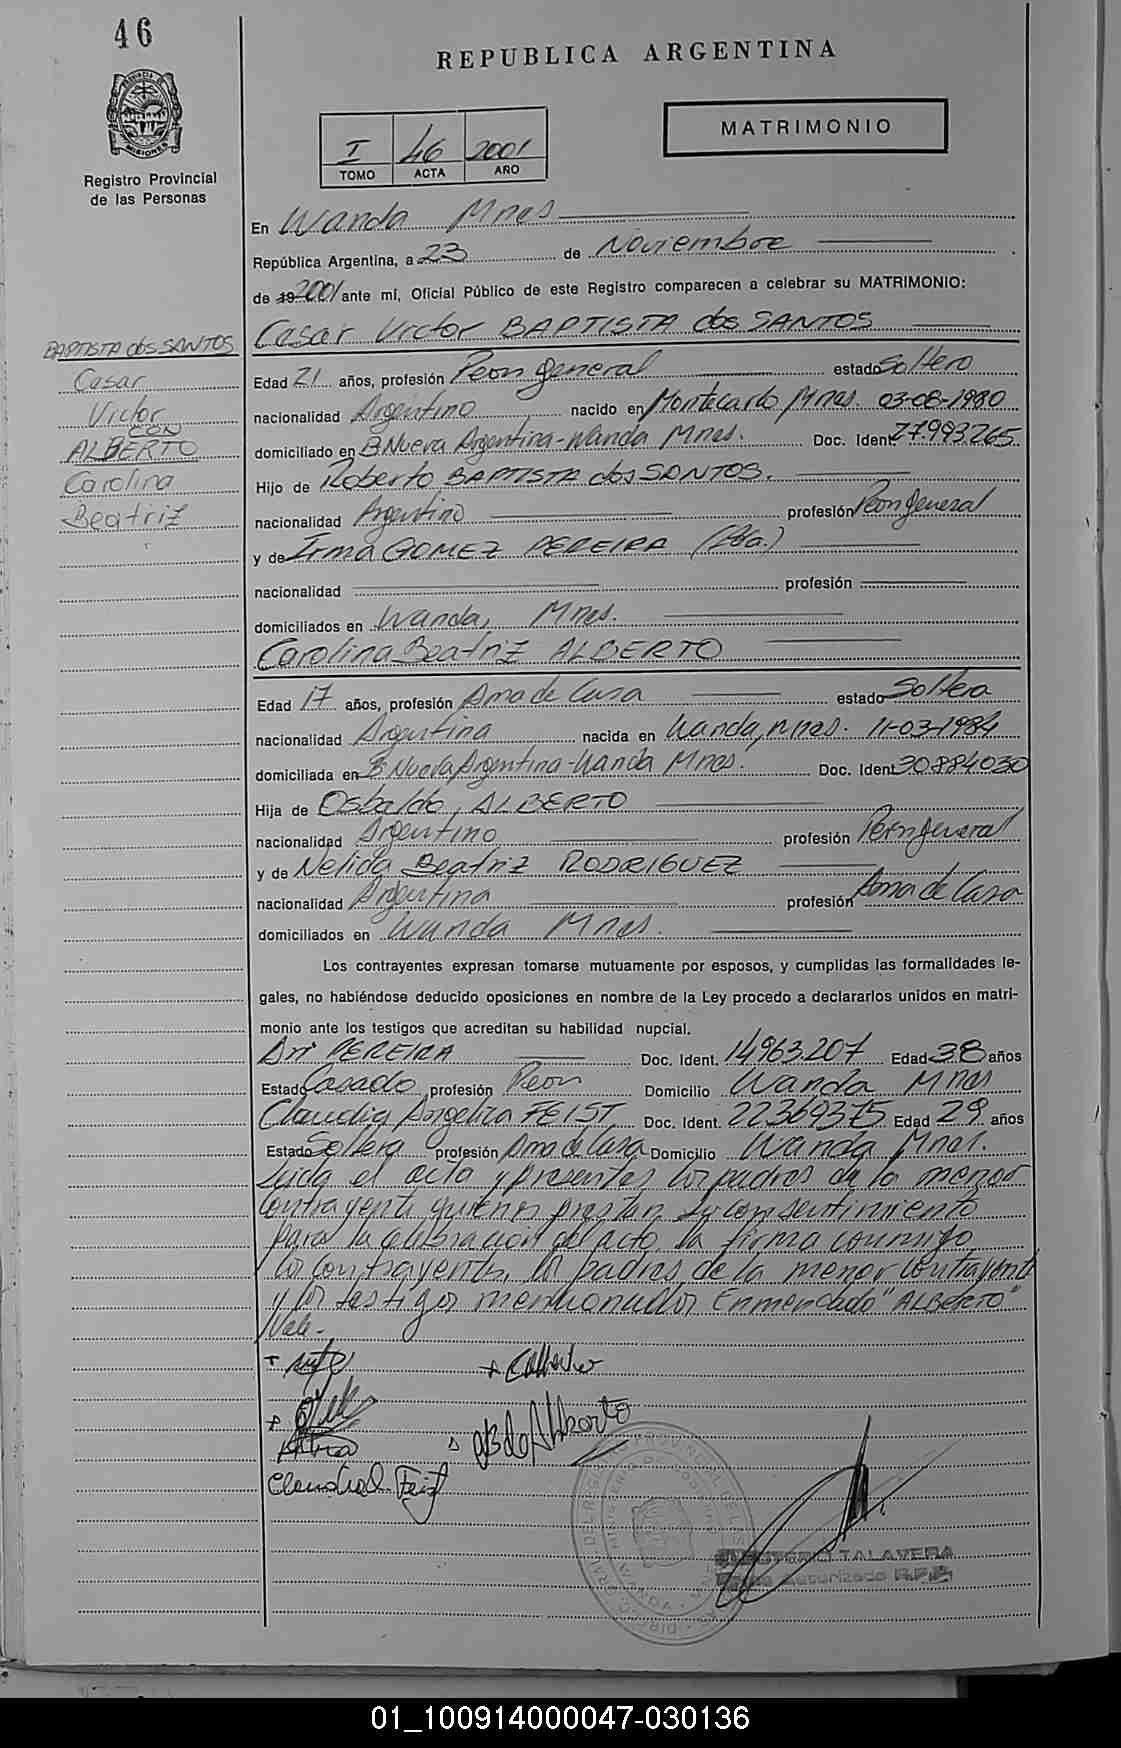 46
REPUBLICA ARGENTINA
PROVINCIA DE
MISIONES
Registro Provincial
de las Personas
MATRIMONIO
I 46 2001
TOMO ACTA AÑO
En Wanda Mnes
República Argentina, a 23 de Noviembre
de 19 2001 ante mí, Oficial Público de este Registro comparecen a celebrar su MATRIMONIO:
Cesar Victor BAPTISTA dos SANTOS
BAPTISTA dos SANTOS
Cesar
Victor
CON
ALBERTO
Carolina
Beatriz
Edad 21 años, profesión Peon general estado Soltero
nacionalidad Argentino nacido en Montecarlo Mnes. 03-08-1980
domiciliado en B Nueva Argentina-Wanda Mnes. Doc. Ident. 27993265
Hijo de Roberto BAPTISTA dos SANTOS.
nacionalidad Argentino profesión Peon general
y de Irma GOMEZ PEREIRA
nacionalidad profesión
domiciliados en Wanda, Mnes.
Carolina Beatriz ALBERTO
Edad 17 años, profesión Ama de Casa estado Soltera
nacionalidad Argentina nacida en Wanda, Mnes. 11-03-1984
domiciliada en B Nueva Argentina-Wanda Mnes. Doc. Ident. 30884030
Hija de Osbaldo, ALBERTO
nacionalidad Argentino profesión Peon general
y de Nelida Beatriz RODRIGUEZ
nacionalidad Argentina profesión Ama de Casa
domiciliados en Wanda Mnes.
Los contrayentes expresan tomarse mutuamente por esposos, y cumplidas las formalidades le-
gales, no habiéndose deducido oposiciones en nombre de la Ley procedo a declararlos unidos en matri-
monio ante los testigos que acreditan su habilidad nupcial.
Ari PEREIRA Doc. Ident. 14963.207 Edad 38 años
Estado Casado profesión Peon Domicilio Wanda Mnes
Claudia Angelica FEIST Doc. Ident. 22369375 Edad 29 años
Estado Soltera profesión Ama de Casa Domicilio Wanda Mnes.
Leida el acta y presentes los padres de la menor
contrayente quienes prestan su consentimiento
para la celebracion del acto, la firma conmigo
los contrayentes, los padres de la menor contrayente
y los testigos mencionados. Enmendado "ALBERTO"
Vale.-
CAlberto
Alberto
Claudia A. Feist
TALAVERA
Autorizado R.P.P.
01_100914000047-030136